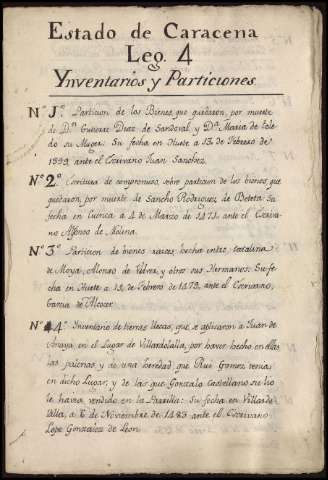 Estado de Caracena
Leg. 4
Ynventarios y Particiones
Nº 1º. Particion de los Bienes, que quedaron, por muerte
de Dn. Gutierre Diaz de Sandoval, y Dª. Maria de Tole
do su Muger. Su fecha en Huete a 13 de Febrero de
ante el Escrivano Juan Sanchez.
Nº 2º Escritura de compromiso, sobre particion de los bienes, que
quedaron, por muerte de Sancho Rodriguez, de Beteta: Su
fecha en Cuenca a 4 de Marzo de 1471. ante el Escri-
vano Alfonso de Molina.
Nº 3º Particion de bienes raices, hecha entre, Catalina
de Moya, Alonso de y otros sus Hermanos: Su fe-
cha en Huete a 12 de Febrero de 1478. ante el Escrivano,
Garcia de Alcocer
Nº 4º Inventario de tierras llecas, que se aplicaron a Juan de
Anaya, en el Lugar de Villardelsalla, por haver hecho en ellas
las y de una heredad, que Rui Gomez tenia
en dicho Lugar; y de las que Gonzalo Castellano no
le havia vendido en la Su fecha en Villardel
Salla, a 6 de Noviembre de 1483 ante el Escrivano
Lope Gonzalez de Leon